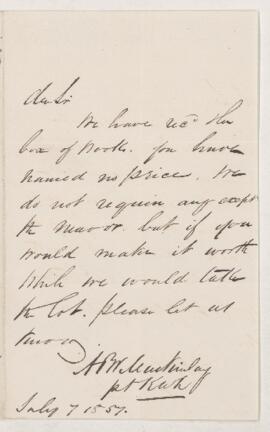 Dr Sir
We have recd the
box of books. you have
named no price. We
do not require any except
the
would make it worth
while we would take
the lot. please let us
know
July 7 1857.